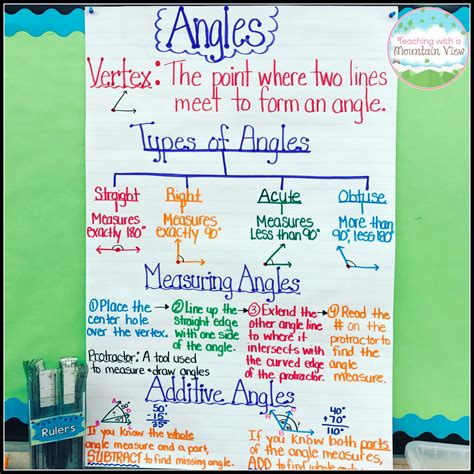 Teaching with a
Mountain View
Angles
Vertex: The point where two lines
meet to form an angle.
Types of Angles
Straight Right Acute Obtuse
Measures Measures Measures More than
exactly 180° exactly 90° Less than 90° 90°, less 180°
Measuring Angles
① Place the
center hole
over the vertex.
② Line up the
straight edge
with one side
of the angle.
③ Extend the
other angle line
to where it
intersects with
the curved edge
of the protractor.
④ Read the
# on the
protractor to
find the
angle
measure.
Protractor: A tool used
to measure + draw angles
Additive Angles
50°
-15°
35°
40°
+70°
110°
If you know the whole
angle measure and a part,
SUBTRACT to find missing angle.
If you know both parts
of the angle measures,
ADD to find whole
Rulers